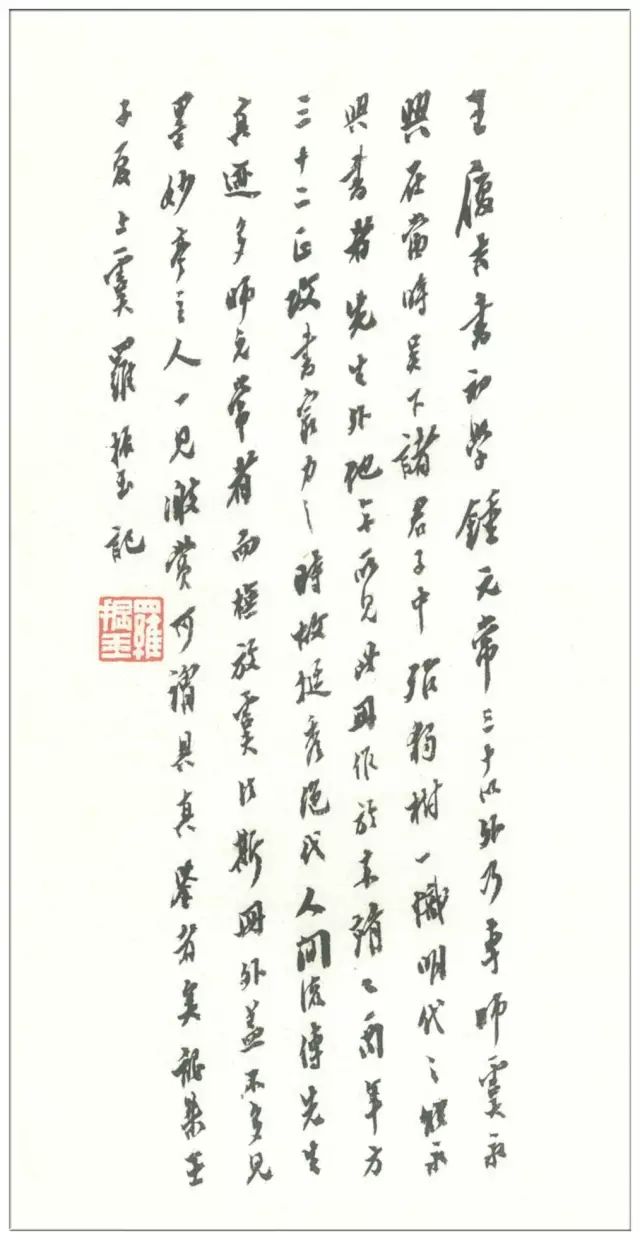 王履吉書初學鍾元常三十以外乃專師虞永
興在當時吳下諸君子中殆獨樹一幟明代之能永
興書者先生外他無所見此冊作於嘉靖乙酉年方
三十二正攻書最力之時故挺秀絕代人間流傳先生
真迹多師元常者而橅放虞法斯冊外蓋不多見
墨妙亭主人一見激賞可謂具真鑒者矣龍集壬
子夏上虞羅振玉記
羅振玉